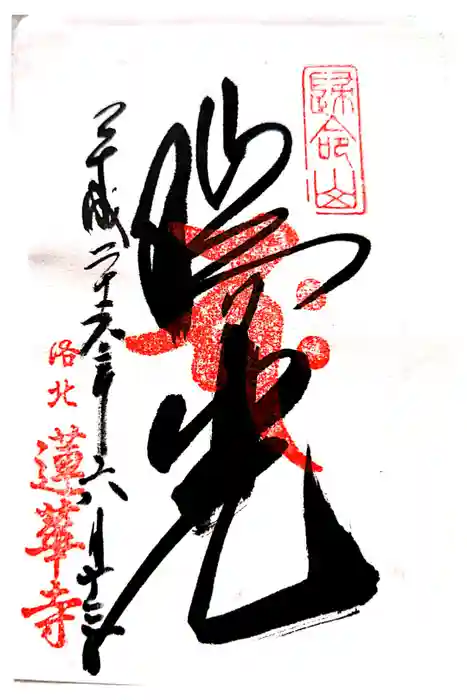 歸命山
光
平成二十六年六月十三日
洛北 蓮華寺